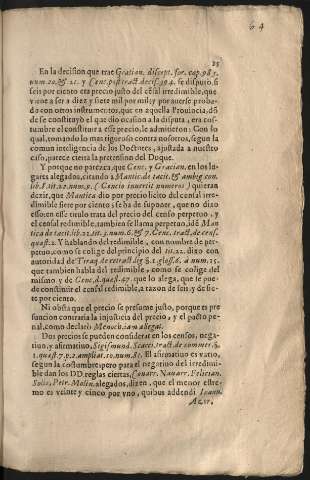 64
25
En la decision que trae Gratian. discept. for. cap. 983.
num. 20. & 21. y Cenc. post tract. decis. 394. se disputò, si
seis por ciento era precio justo del censal irredimible, que
viene a ser a diez y siete mil por mil; y por averse proba-
do con otros instrumentos, que en aquella Provincia, dõ
de se constituyò el que dio ocasion a la disputa, era cos-
tumbre el constituir a esse precio, le admitieron: Con lo
qual, tomando lo mas riguroso contra nosotros, segun la
comun inteligencia de los Doctores, ajustada a nuestro
caso, parece cierta la pretension del Duque.
Y porque no parezca, que Cenc. y Gratian. en los lu-
gares alegados, citando a Mantic. de tacit. & ambig. con.
lib. 22. num. 9. ( Cencio invertit numeros ) quieran
dezir, que Mantica dio por precio licito del censal irre-
dimible siete por ciento; se ha de suponer, que no dixo
esso; en esse titulo trata del precio del censo perpetuo, y
el censal redimible, tambien se llama perpetuo, idẽ Man
tica de tacit. lib. 22. tit. 3. num. 6. & 7. Cenc. tract. de cens.
quæst. 2. Y hablando del redimible, con nombre de per-
petuo, como se colige del principio del tit. 22. dize con
autoridad de Tiraq. de retract. lig. §. 1. gloss. 6. a num. 15.
que tambien habla del redimible, como se colige del
mismo y de Cenc. d. quæst. 47. que lo alega, que se pue-
de constituir el censal redimible, a razon de seis y de sie-
te por ciento.
Ni obsta que el precio se presume justo, porque es pre
suncion contraria la injusticia del precio, y el pacto pe-
nal, como declarò Menoch. iam alegat.
Dos precios se pueden considerar en los censos, nega-
tivo, y afirmativo, Sigismund. Scacci. tract. de commer. §.
1. quæst. 7. p. 2. ampliat. 10. num. 81. El afirmativo es vario,
segun la costumbre; pero para el negativo del irredimi-
ble dan los DD. reglas ciertas, Covarr. Navarr. Felician.
Solis, Petr. Molin. alegados, dizen, que el menor estre-
mo es veinte y cinco por vno, quibus addendi Ioann.